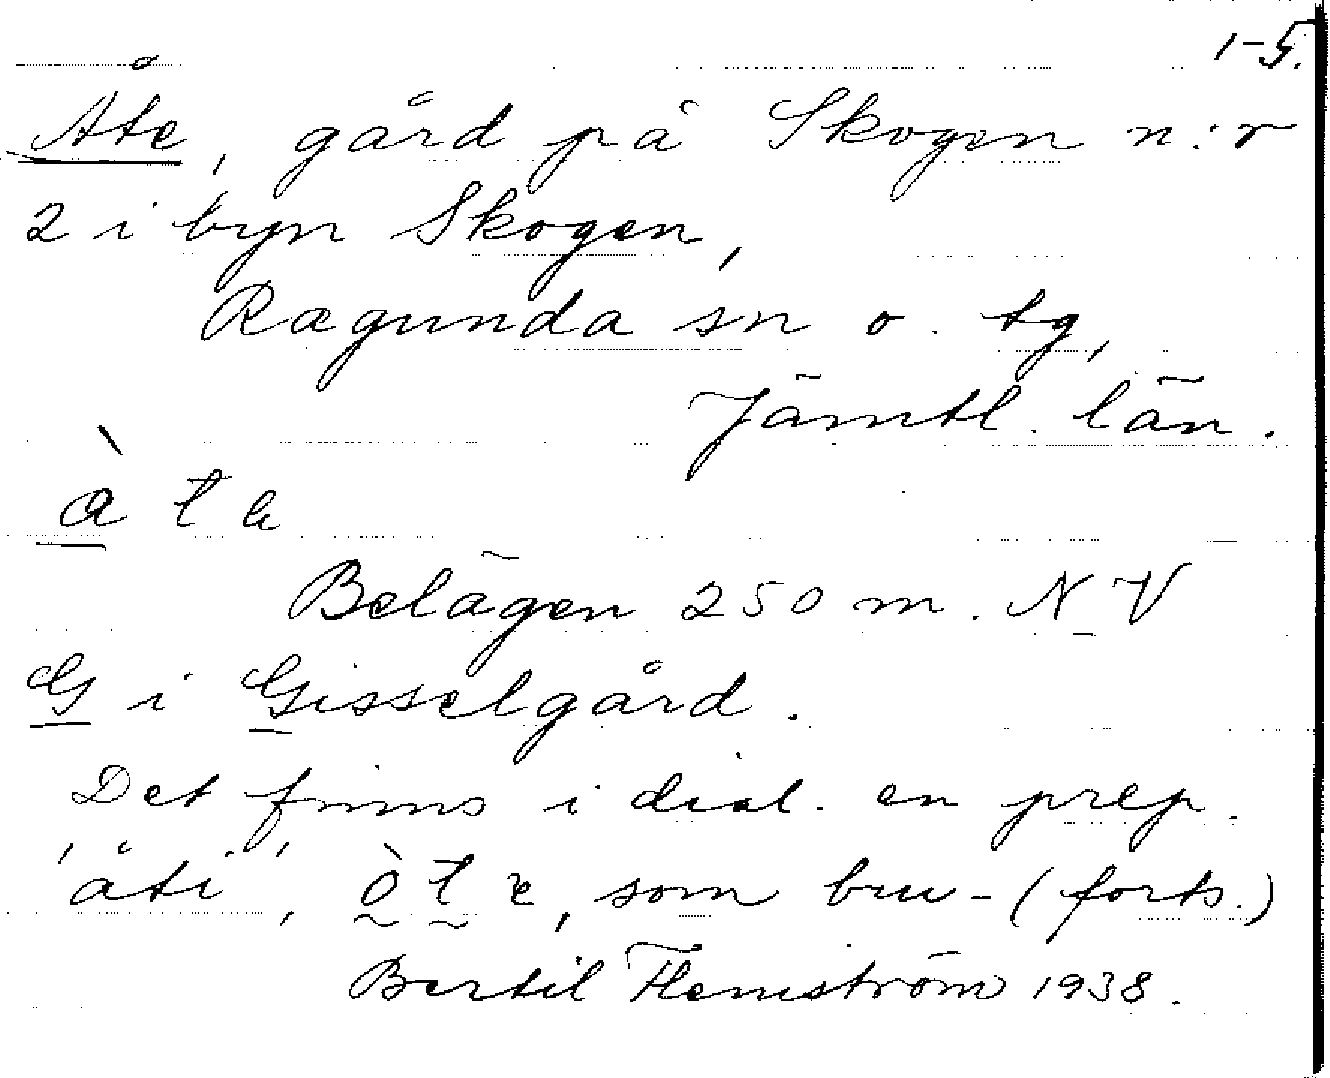 1-5.
Åte, gård på Skogen n:r
2 i byn Skogen,
Ragunda sn o. tg,
Jämtl. län.
à t e
Belägen 250 m. NV
G i Gisselgård.
Det finns i dial. en prep.
'åti', ò t e, som bru- (forts.)
Bertil Flemström 1938.